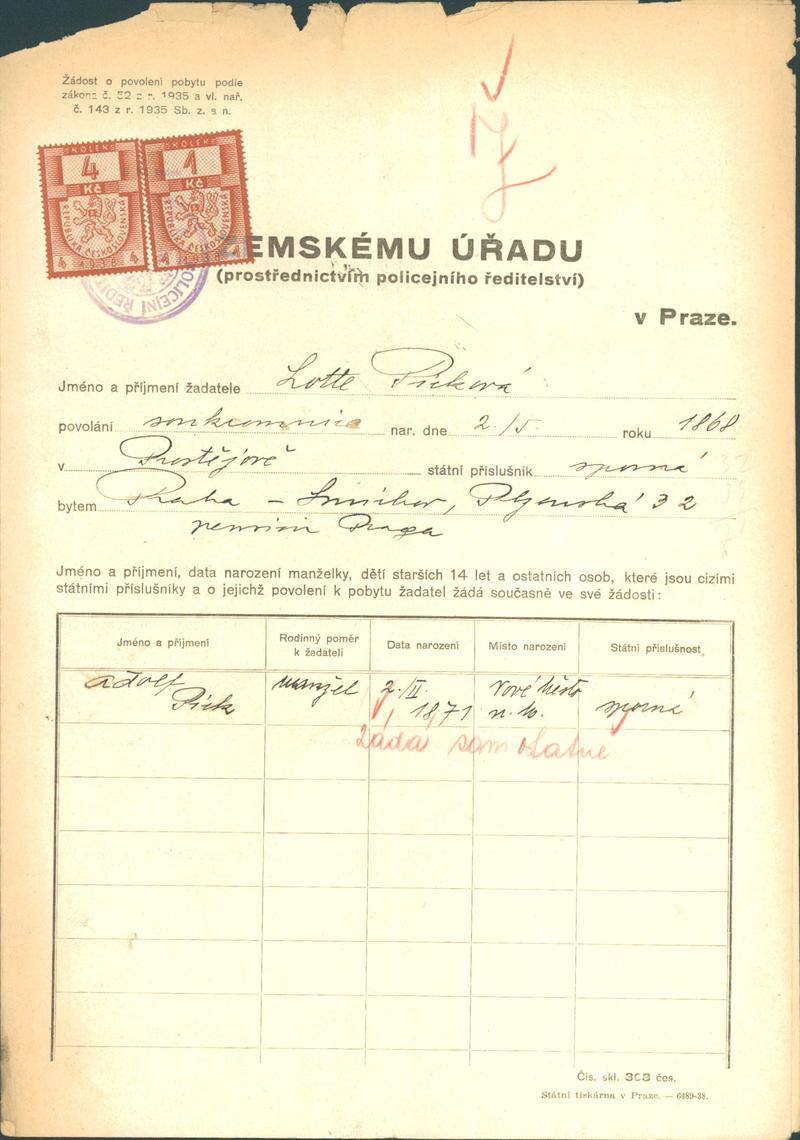 Žádost o povolení pobytu podle
zákona č. 52 z r. 1935 a vl. nař.
č. 143 z r. 1935 Sb. z. a n.
KOLEK KOLEK
4 1
Kč Kč
REPUBLIKA ČESKOSLOVENSKÁ REPUBLIKA ČESKOSLOVENSKÁ
POLICEJNÍ ŘEDIT
ZEMSKÉMU ÚŘADU
(prostřednictvím policejního ředitelství)
v Praze.
Jméno a příjmení žadatele Lotte Picková
povolání soukromnice nar. dne 2./5. roku 1868
v Prostějově státní příslušník sporná
bytem Praha – Smíchov, Plzeňská 32
pension Praga
Jméno a příjmení, data narození manželky, dětí starších 14 let a ostatních osob, které jsou cizími
státními příslušníky a o jejichž povolení k pobytu žadatel žádá současně ve své žádosti:
Jméno a příjmení Rodinný poměr k žadateli Data narození Místo narození Státní příslušnost
Adolf manžel 2./II. Nové Město
Pick 1871 n. M. sporná
žádá samostatně
Čís. skl. 308 čes.
Státní tiskárna v Praze. — 6489-38.